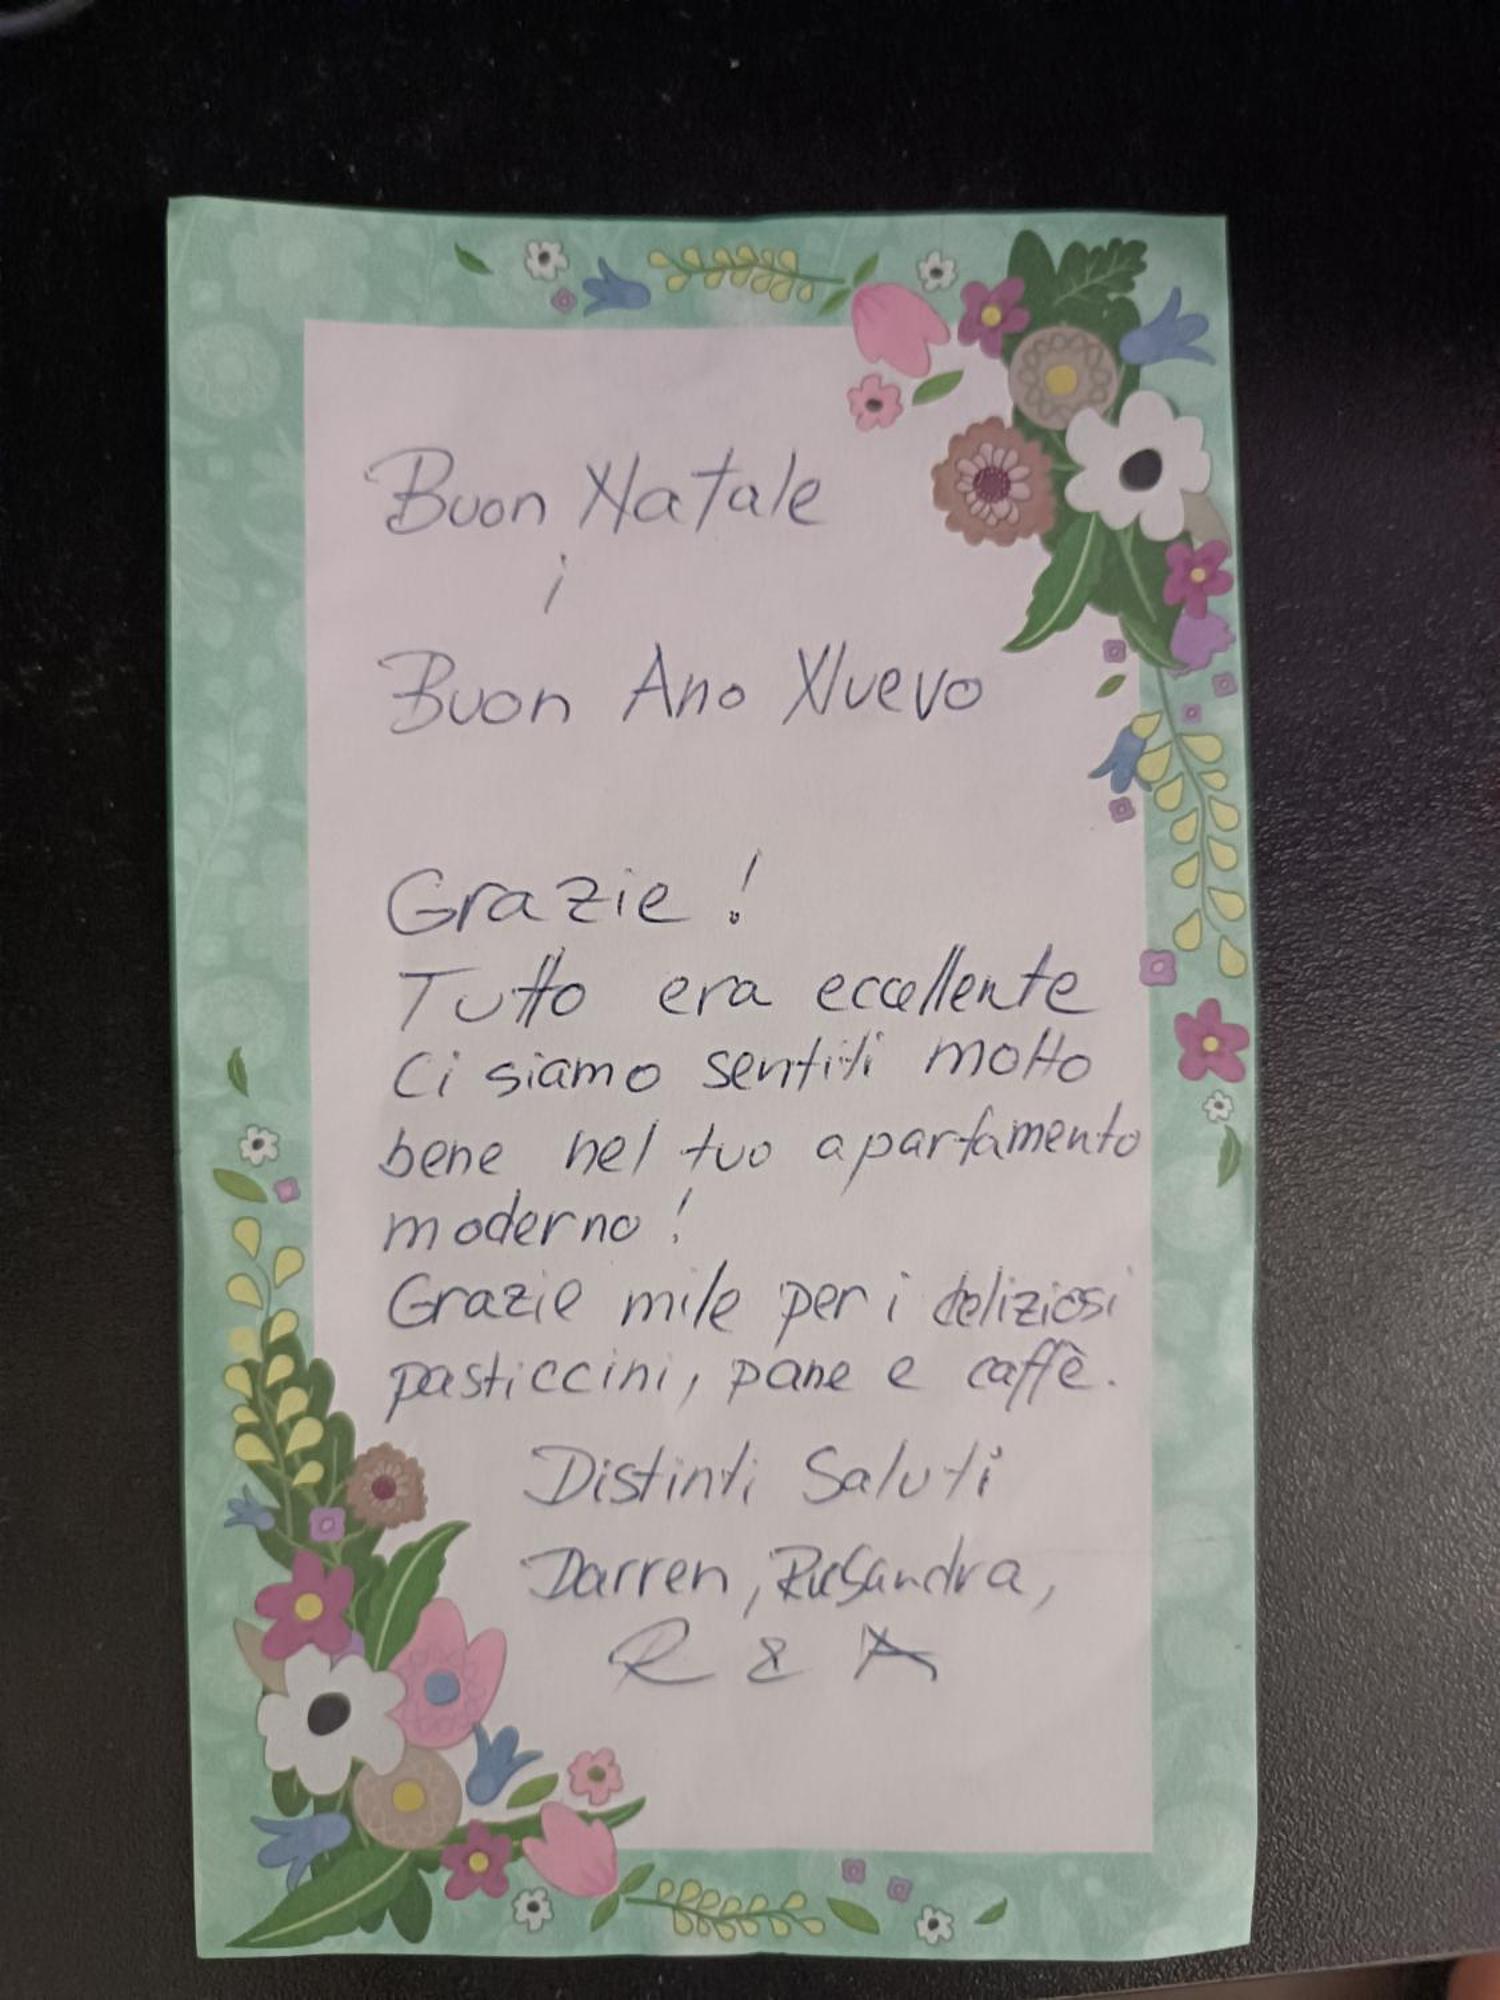 Buon Natale
i
Buon Ano Nuevo
Grazie!
Tutto era eccellente
Ci siamo sentiti molto
bene nel tuo apartamento
moderno!
Grazie mile per i deliziosi
pasticcini, pane e caffè.
Distinti Saluti
Darren, RuSandra,
R & A